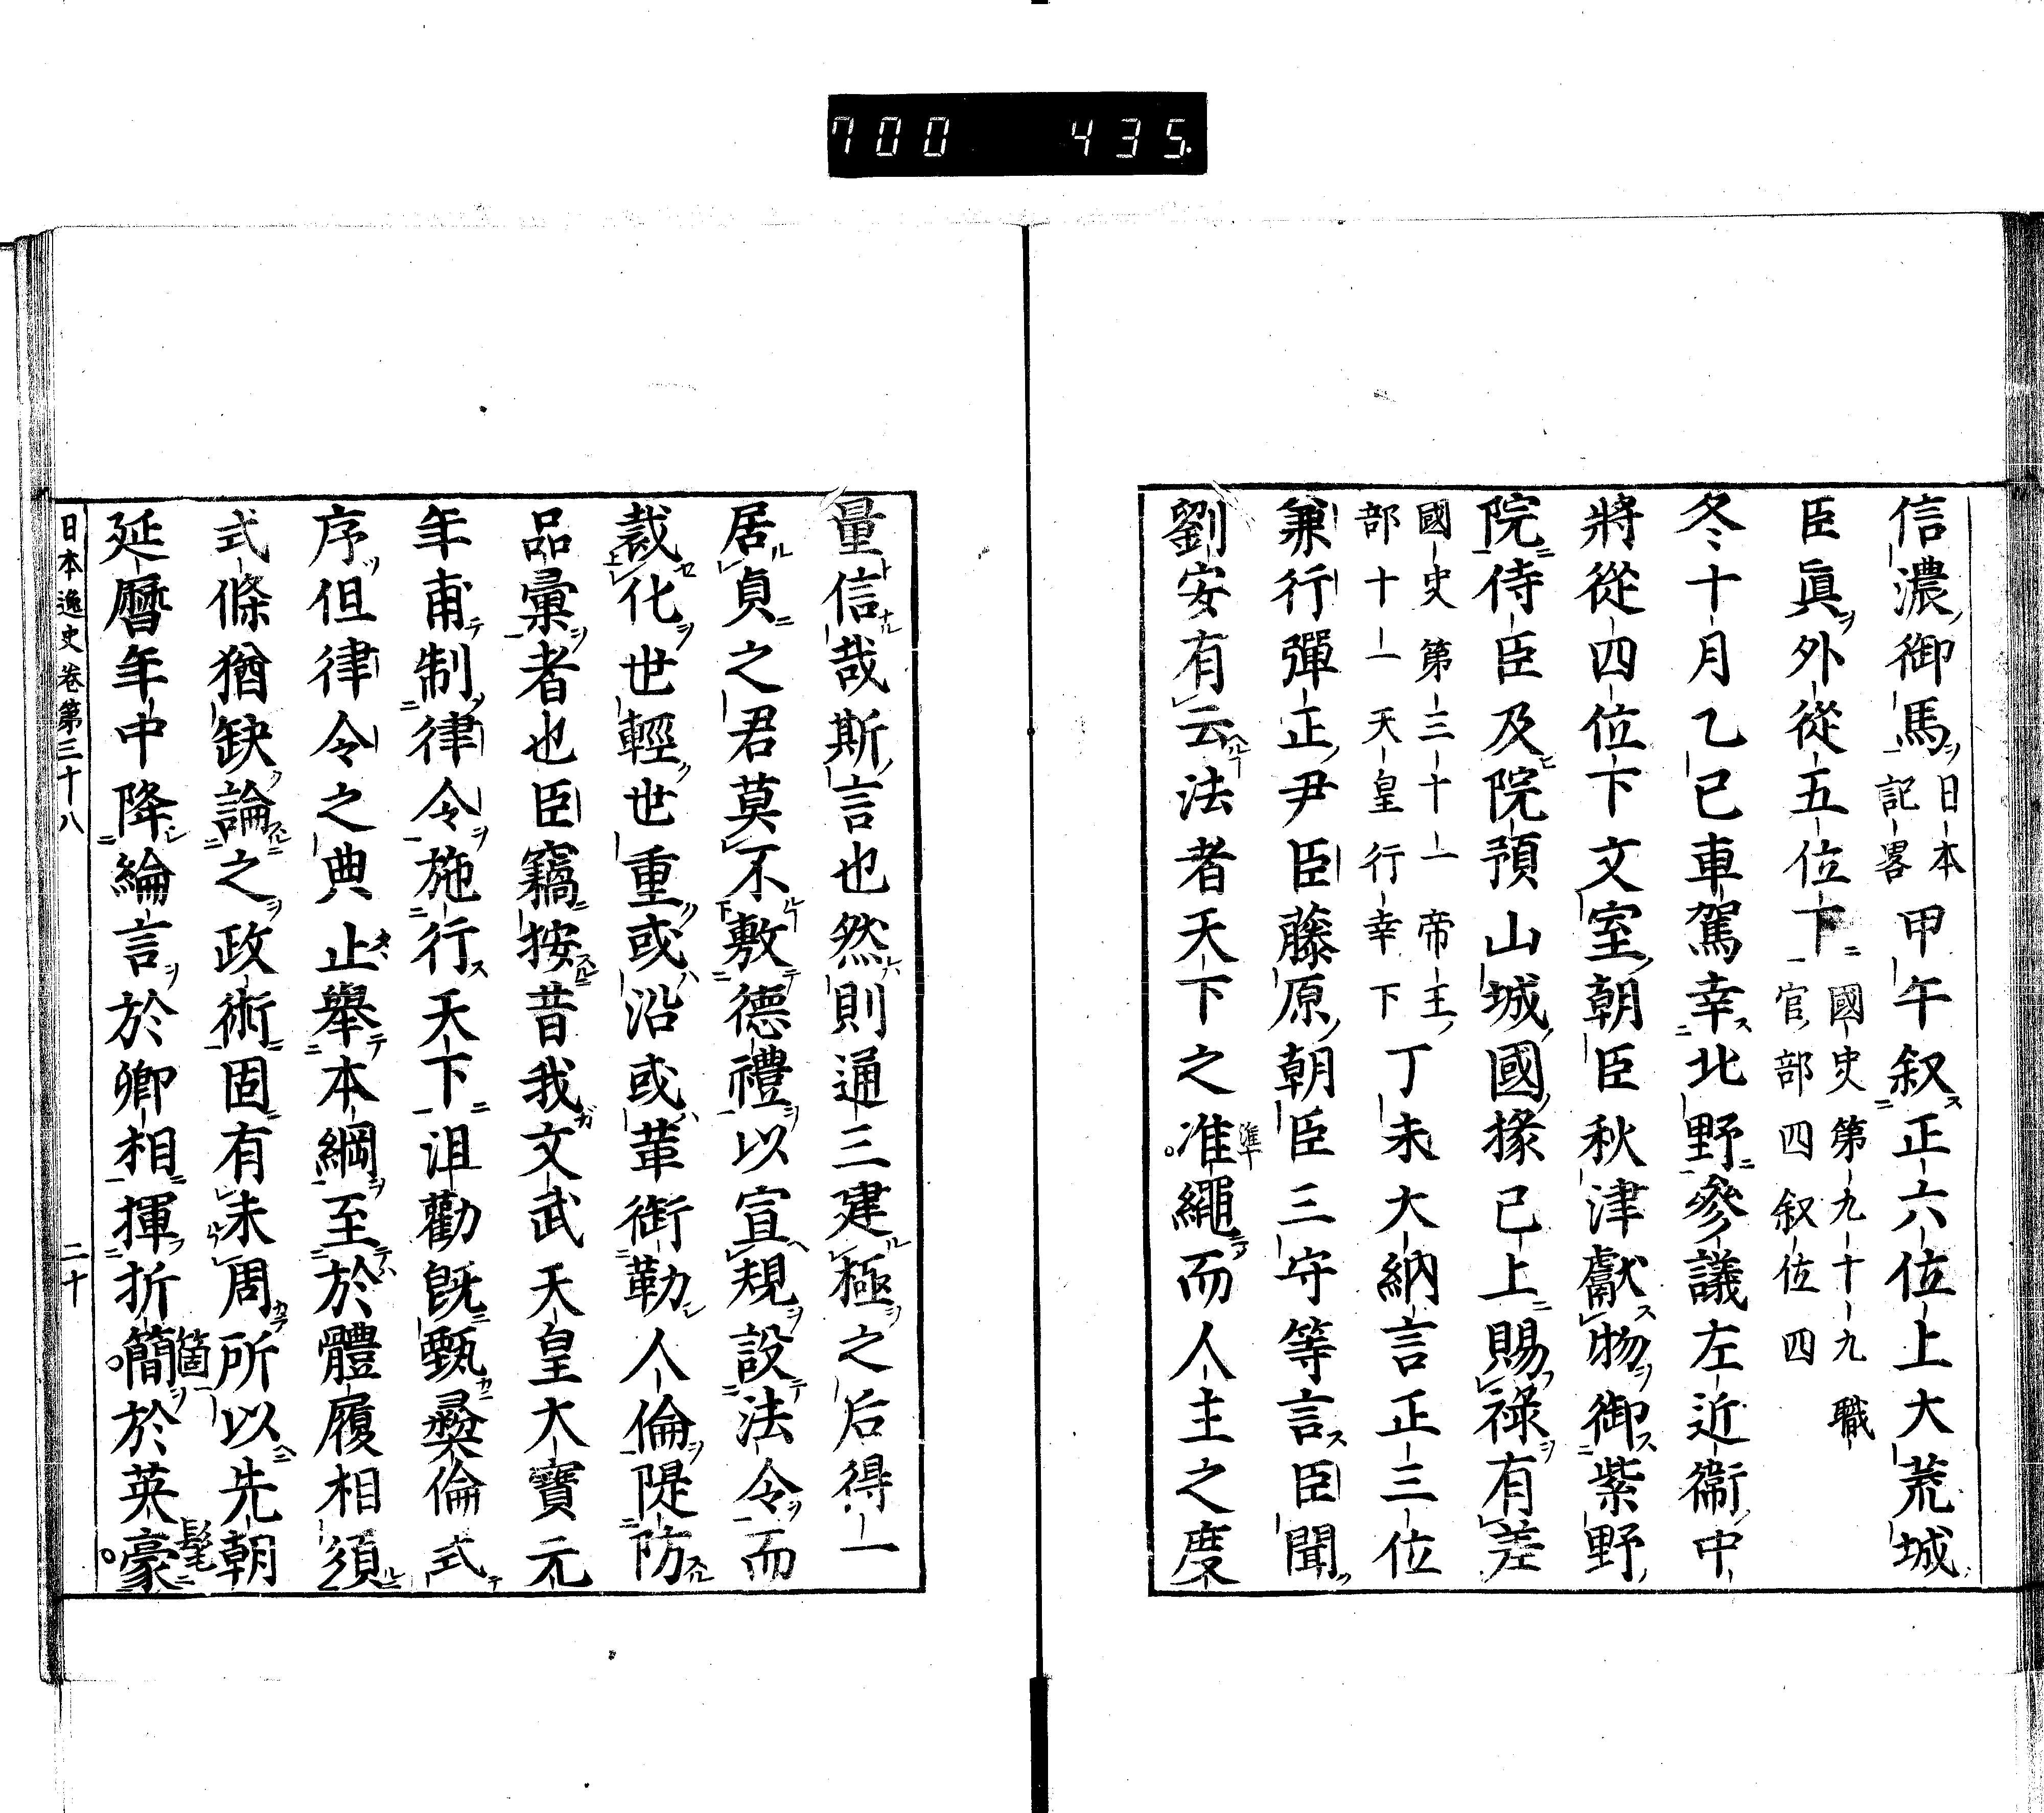 700 435.
信濃御馬日本記畧甲午叙正六位上大荒城
臣眞外從五位下國史第九十九職官部四叙位四
冬十月乙巳車駕幸北野參議左近衞中
將從四位下文室朝臣秋津獻物御紫野
院侍臣及院預山城國掾已上賜祿有差
國史第三十一帝王部十一天皇行幸下丁未大納言正三位
兼行彈正尹臣藤原朝臣三守等言臣聞
劉安有云法者天下之准繩而人主之度
準
量信哉斯言也然則通三建極之后得一
居貞之君莫不敷德禮以宣規設法令而
裁化世輕世重或沿或革銜勒人倫隄防
品彙者也臣竊按昔我文武天皇大寶元
年甫制律令施行天下沮勸既甄彜倫式
序但律令之典止舉本綱至於體履相須
式條猶缺論之政術固有未周所以先朝
延曆年中降綸言於卿相揮折簡於英豪
箇
髦
日本逸史卷第三十八 二十